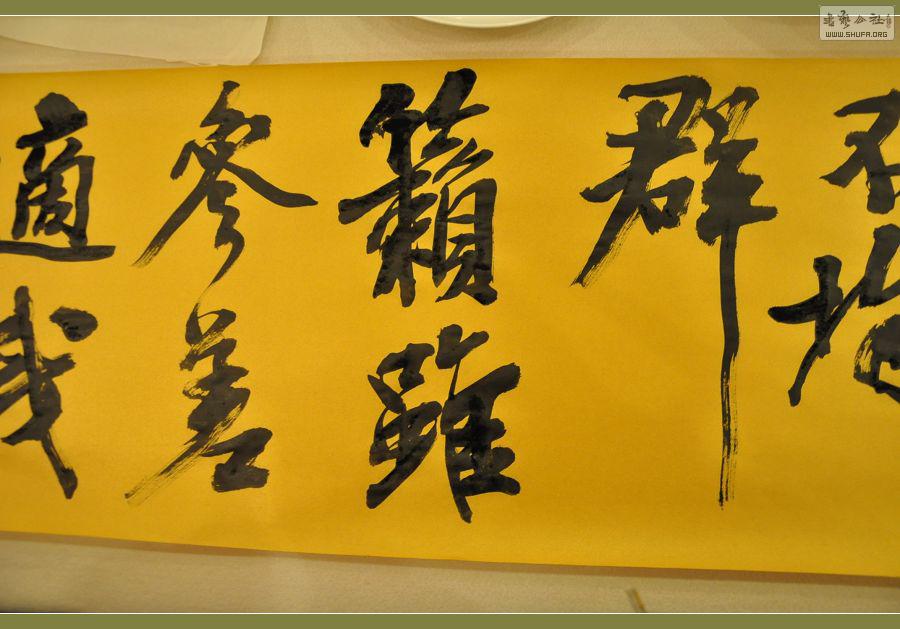 不均
群
籟雖
參差
適我
書藝公社
WWW.SHUFA.ORG